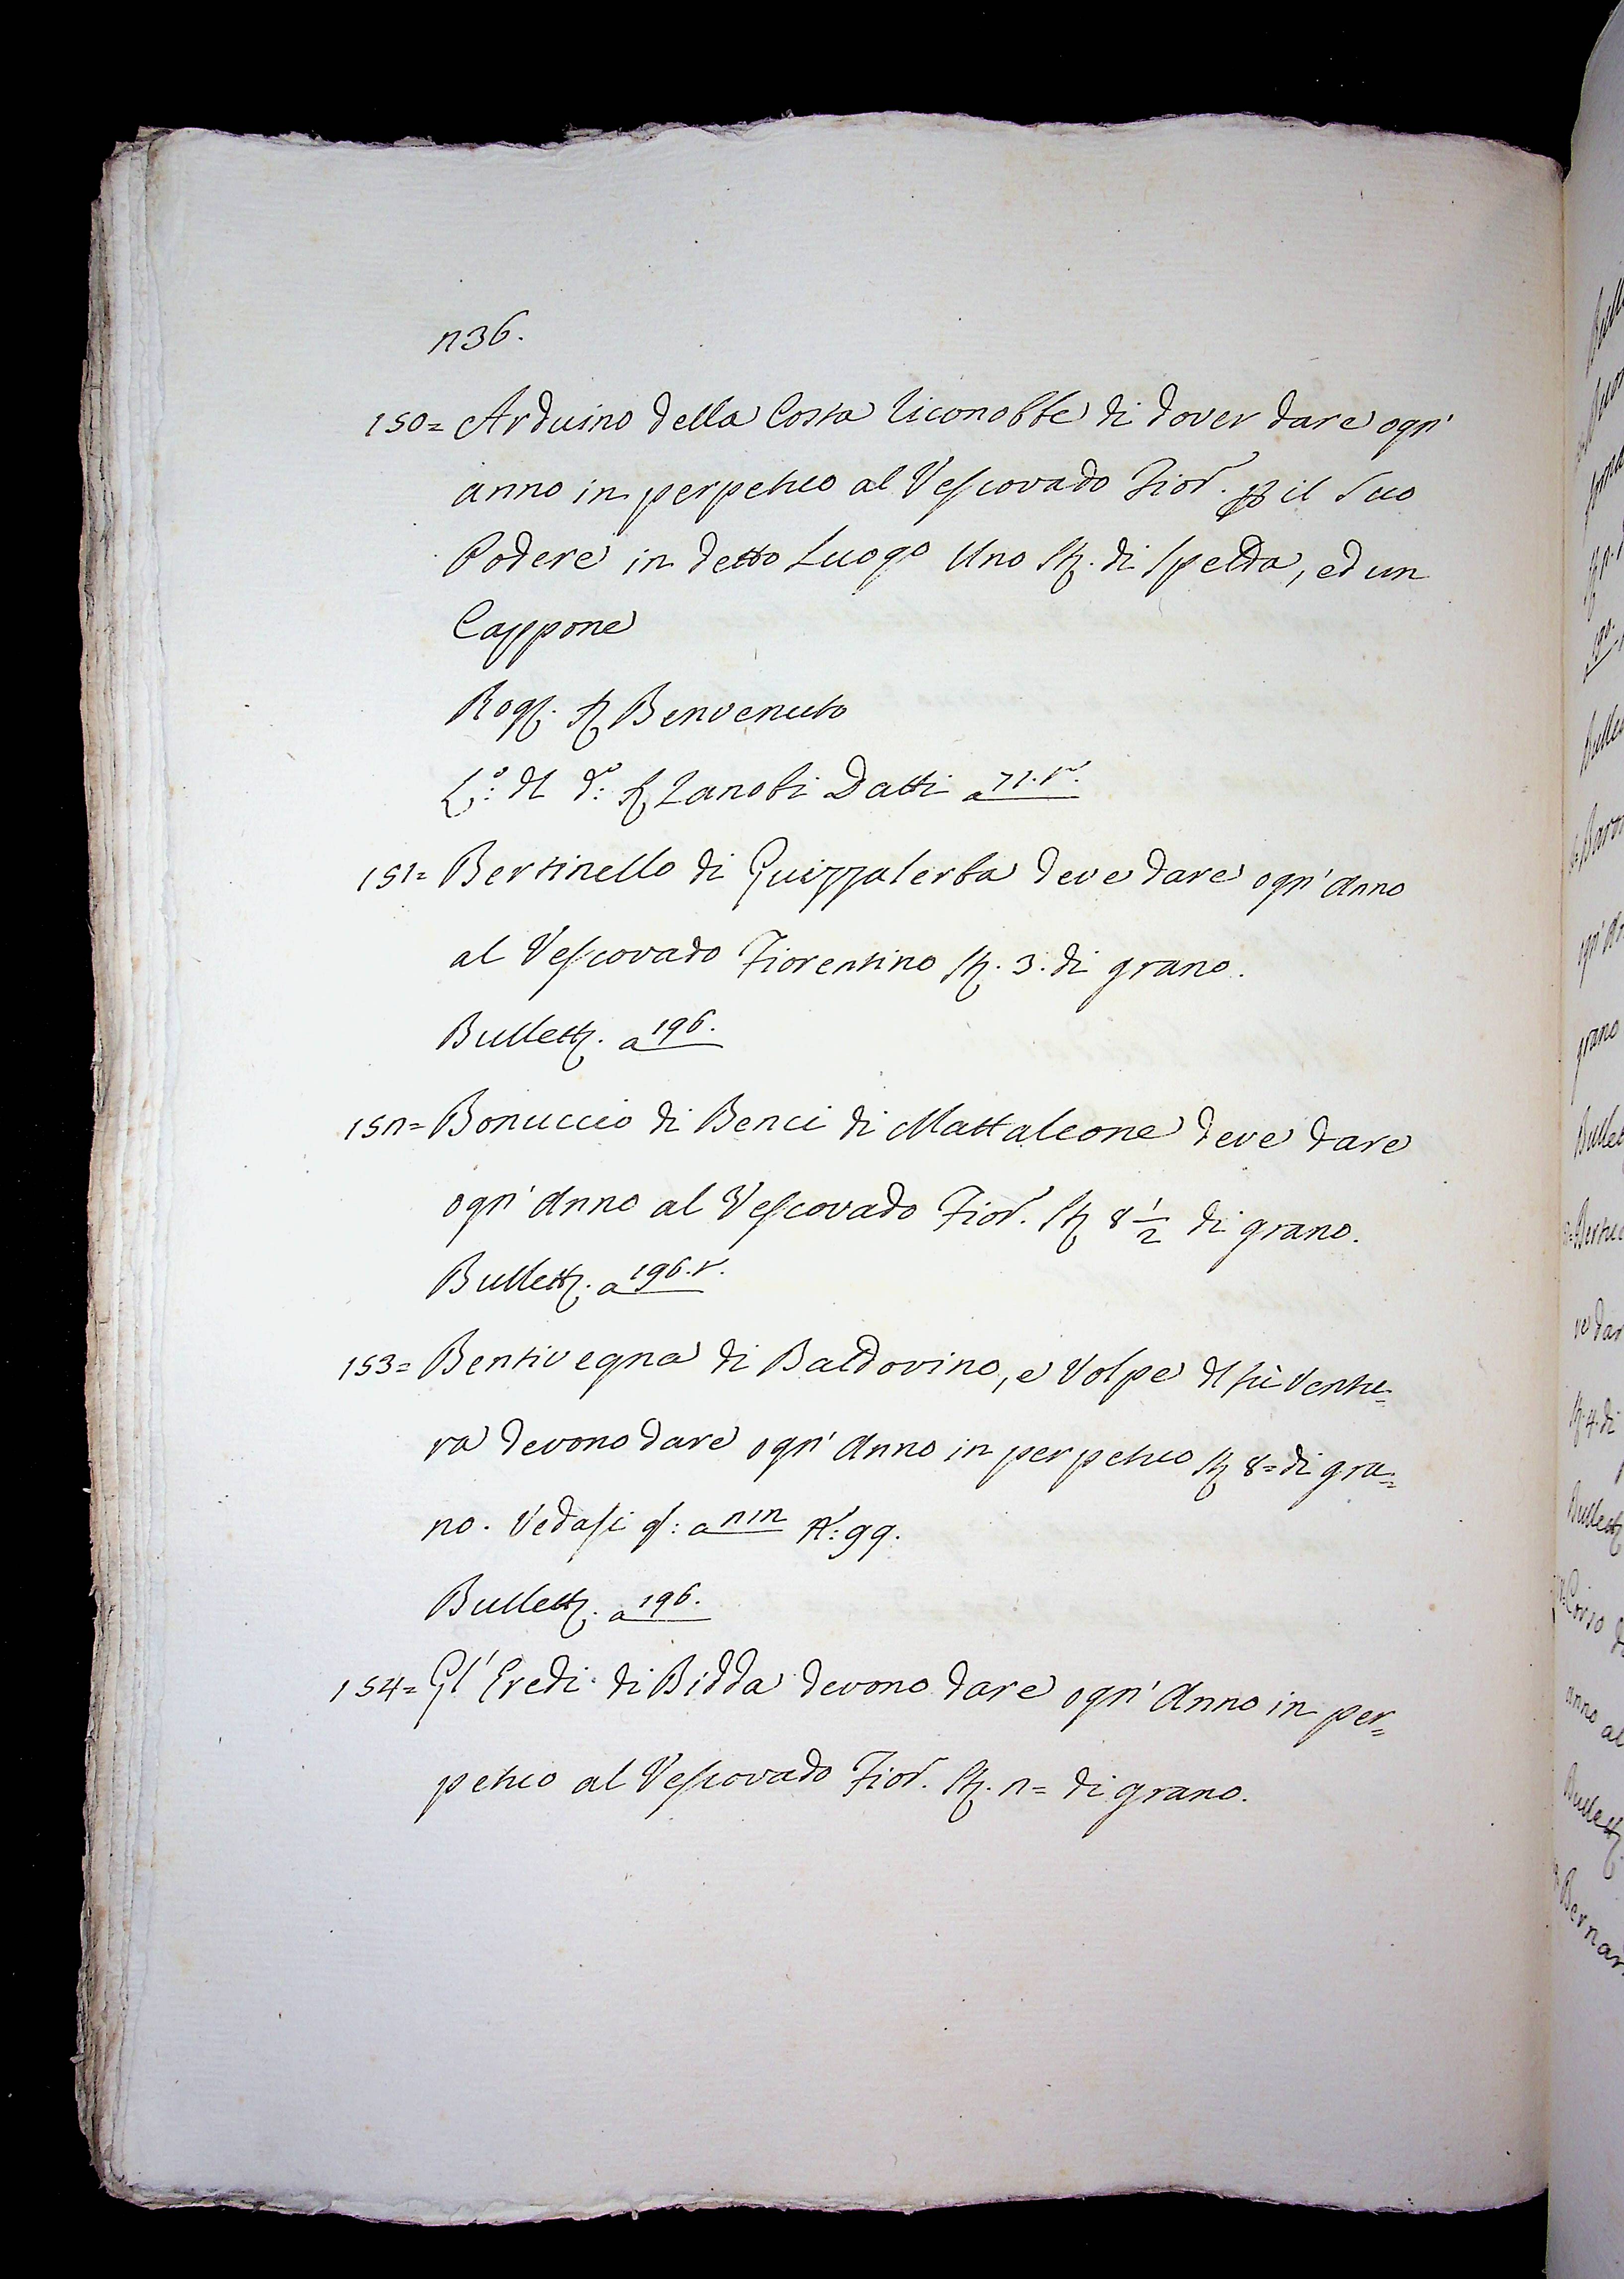 236.
150= Arduino della Costa riconobbe di dover dare ogn'
anno in perpetuo al Vescovado Fior. p il suo
Podere in detto Luogo Uno St. di spelda, ed un
Cappone
Rog. S. Benvenuto
L.o: del d.o: S. Zanobi Datti a 71. v.
151= Bertinello di Guizzalerba deve dare ogn' Anno
al Vescovado Fiorentino St. 3. di grano.
Bullett. a 196.
152= Bonuccio di Benci di Mattaleone deve dare
ogn' Anno al Vescovado Fior. St. 8 1/2 di grano.
Bullett. a 196. v.
153= Bentivegna di Baldovino, e Volpe del fù Ventu=
ra devono dare ogn' Anno in perpetuo St. 8= di gra=
no. Vedasi q: a 212 N: 99.
Bullett. a 196.
154= Gl' Eredi di Bidda devono dare ogn' Anno in per=
petuo al Vescovado Fior. St. 2= di grano.